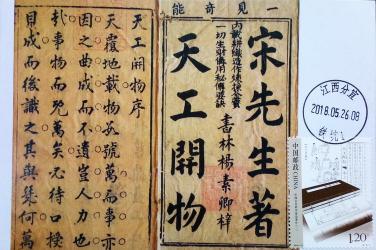 一見奇能
宋先生著
天工開物
內載耕織造作煉採金寶
一切生財備用秘傳要訣
書林楊素卿梓
天工開物序
天覆地載物數號萬而事亦
因之曲成而不遺豈人力也
哉事物而既萬矣必待口授
目成而後識之其與幾何萬
江西分宜
2018.05.26.08
中国邮政
CHINA
1.20